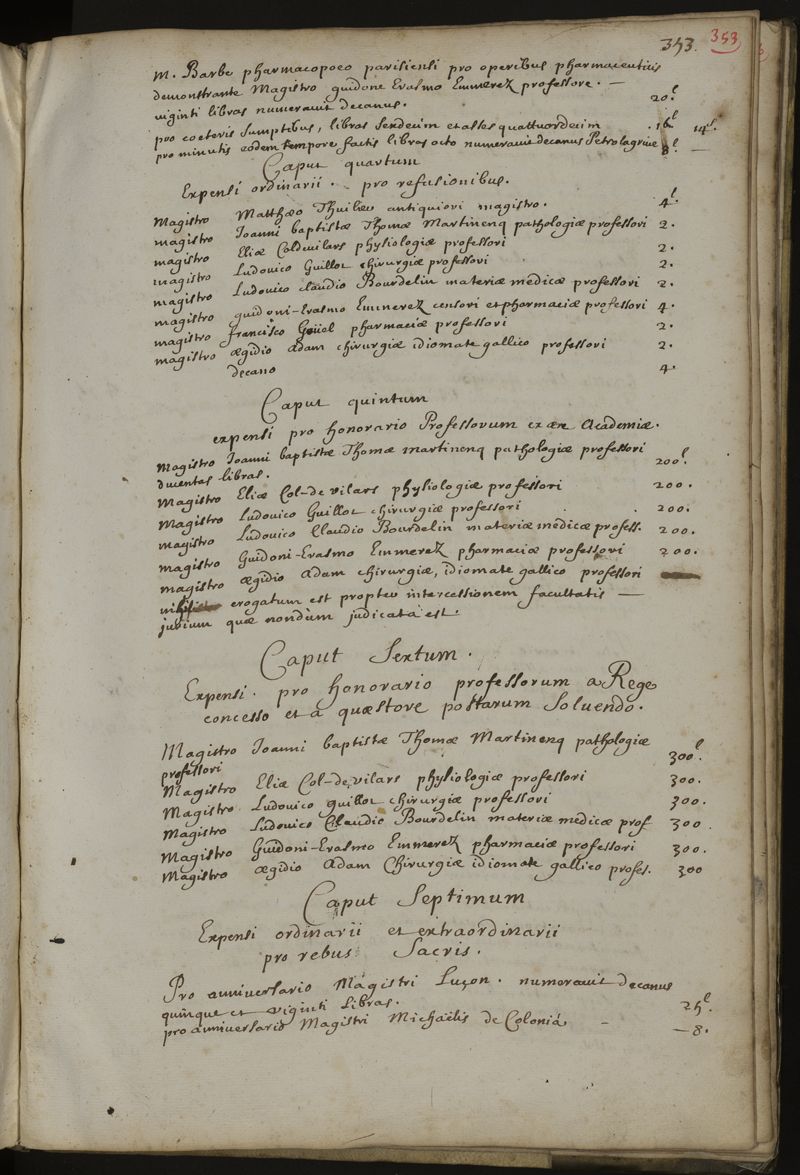 353. 353
M. Barbe pharmacopoeo parisiensi pro operibus pharmaceuticis
demonstrante Magistro guidone Erasmo Emmerez professore. —
viginti libras numeravit decanus. 20.l
pro coeteris sumptibus, libras sexdecim et asses quattuordecim . 16.l 14s.
pro minutis eodem tempore factis libros octo numeravit decanus Petro lagrive 8.l —
Caput quartum
Expensi ordinarii. pro refusionibus.
Magistro Matthæo Thuilier antiquiori magistro. 4.l
magistro Joanni baptistæ Thomæ Martinenq pathologiæ professori 2.
magistro Eliæ Coldevilars physiologiæ professori 2.
magistro Ludovico Guillot chirurgiæ professori 2.
magistro Ludovico claudio Bourdelin materiæ medicæ professori 2.
magistro guidoni-Erasmo Emmerez censori et pharmaciæ professori 4.
magistro francisco Goüel pharmaciæ professori 2.
magistro ægidio Adam chirurgiæ idiomate gallico professori 2.
decano 4.
Caput quintum
expensi pro honorario Professorum ex ære Academiæ.
Magistro Joanni baptistæ Thomæ martinenq pathologiæ professori
ducentas libras. 200.l
Magistro Eliæ Col-de vilars physiologiæ professori 200.
Magistro Ludovico Guillot chirurgiæ professori . . 200.
magistro Ludovico Claudio Bourdelin materiæ medicæ profess. 200.
magistro Guidoni-Erasmo Emmerez pharmaciæ professori 200.
magistro ægidio Adam chirurgiæ, idiomate gallico professori
nihil erogatum est propter intercessionem facultatis —
jurium quæ nondùm judicata est.
Caput Sextum.
Expensi. pro honorario professorum a Rege
concesso et à quæstore postarum Solvendo.
Magistro Joanni baptistæ Thomæ Martinenq pathologiæ
professori 300.l
Magistro Eliæ Col-de, vilars physiologiæ professori 300.
Magistro Ludovico guillot chirurgiæ professori 300.
Magistro Ludovico Claudio Bourdelin materiæ medicæ prof 300.
Magistro Guidoni-Erasmo Emmerez pharmaciæ professori 300.
Magistro ægidio Adam Chirurgiæ idiomate gallico profes. 300
Caput Septimum
Expensi ordinarii et extraordinarii
pro rebus Sacris.
Pro anniversario Magistri Luçon. numeravit decanus
quinque et viginti Libras. 25.l
pro anniversario Magistri Michaëlis de Coloniá — — 8.